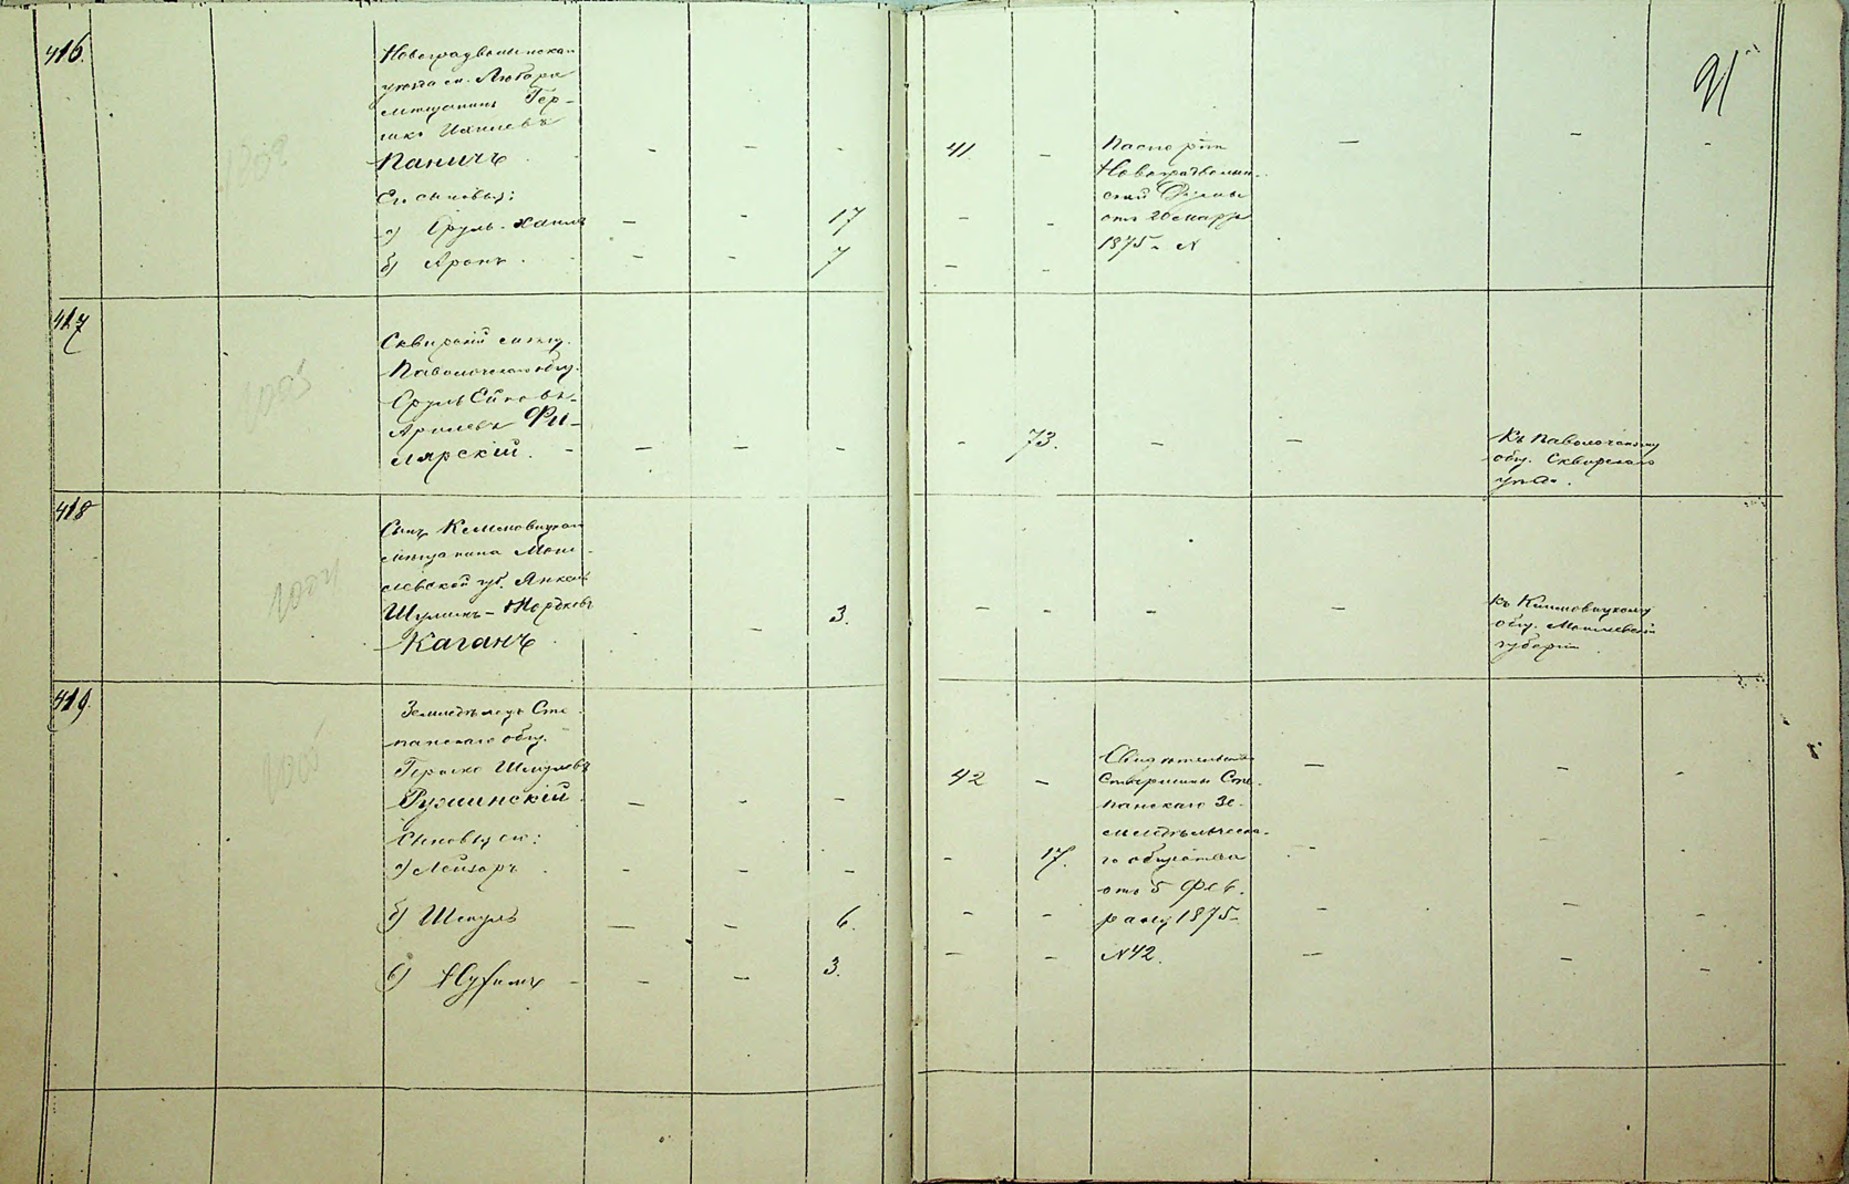 416.
Новоградволынскаго
уезда м. Любара
мещанинъ Гер-
шко
Паничъ
Его сыновья:
а) Сруль-Хаимъ - - 17
б) Аронъ - - 7
41 -
Паспортъ
Новоградволын-
ской Думы
отъ 20 марта
1875 г. N
91
417
Сквирскій мѣщ.
Паволочскаго общ.
Сруль
Фи-
лярскій. - - - -
- 73. - -
Къ Паволочскому
общ. Сквирскаго
уѣзда.
418
Сынъ Климовицкаго
мѣщанина Моги-
левской губ. Янкель
Шулимъ-Мордковъ
Каганъ
- 3.
- - - -
Къ Климовицкому
общ. Могилевской
губерніи
419
Земледѣлецъ Сте-
панскаго общ.
Гершко Шмулевъ
Ружинскій - - -
Сыновья его:
а) Лейзоръ - - -
б) Шмуль - - 6.
в) Нухимъ - - - 3.
42 -
- 17.
Свидѣтельство
Старшины Сте-
панскаго Зе-
мледѣльческа-
го общества
отъ 5 Фев-
раля 1875 г.
N 42.